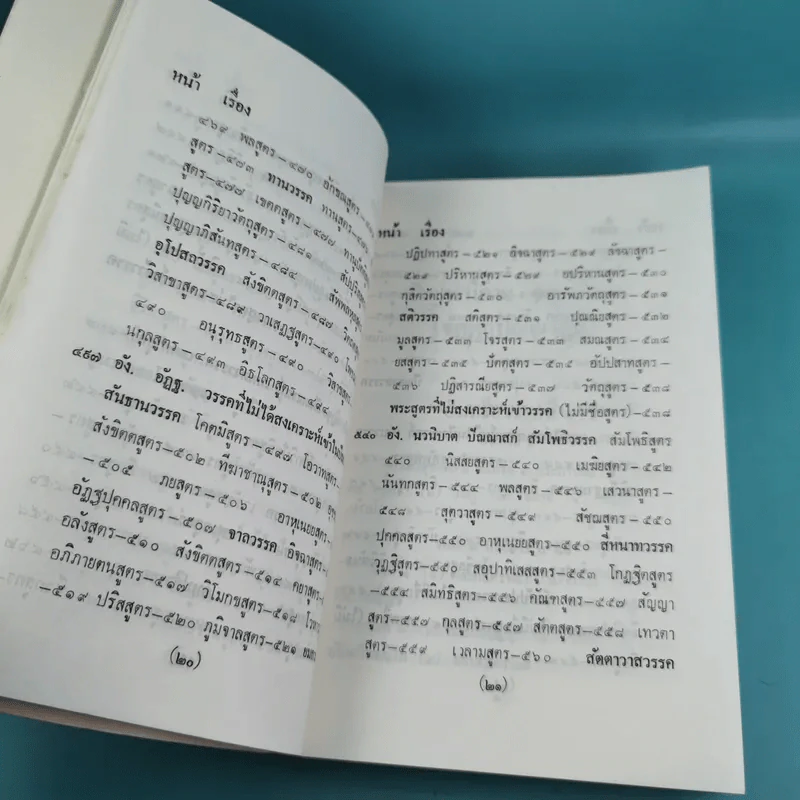 หน้า เรื่อง
๔๖๙ พลสูตร-๔๗๐ อักขณสูตร-
สูตร-๔๗๓ ทานวรรค ทานสูตร-๔๗๖
สูตร-๔๗๗ เขตตสูตร-๔๗๗
ปุญญกิริยาวัตถุสูตร-๔๘๑
ปุญญาภิสันทสูตร-๔๘๔
อุโปสถวรรค สังขิตตสูตร-๔๘๗
วิสาขาสูตร-๔๘๙ วาเสฏฐสูตร-๔๙๐
๔๙๐ อนุรุทธสูตร-๔๙๐
นกุลสูตร-๔๙๓ อิธโลกสูตร-๔๙๔
๔๙๗ อัง. อัฏฐ. วรรคที่ไม่ได้สงเคราะห์เข้าใน
สันธานวรรค โคตมีสูตร-๔๙๗ โอวาทสูตร-
สังขิตตสูตร-๕๐๒ ทีฆาชาณุสูตร-๕๐๒
-๕๐๕ ภยสูตร-๕๐๖ อาหุเนยยสูตร-
อัฏฐปุคคลสูตร-๕๐๗ จาลวรรค อิจฉาสูตร-
อลังสูตร-๕๑๐ สังขิตตสูตร-๕๑๔ คยาสูตร-
อภิภายตนสูตร-๕๑๗ วิโมกขสูตร-๕๑๘
-๕๑๙ ปริสสูตร-๕๒๐ ภูมิจาลสูตร-๕๒๑ ยมก
(๒๐)
หน้า เรื่อง
ปฏิปทาสูตร-๕๒๑ ลิจฉาสูตร-๕๒๙ ลัจฉาสูตร-
๕๒๙ ปริหานสูตร-๕๒๙ อปริหานสูตร-๕๓๐
กุสิตวัตถุสูตร-๕๓๐ อารัพภวัตถุสูตร-๕๓๑
สติวรรค สติสูตร-๕๓๑ ปุณณิยสูตร-๕๓๒
มูลสูตร-๕๓๓ โจรสูตร-๕๓๓ สมณสูตร-๕๓๔
ยสสูตร-๕๓๕ ปัตตสูตร-๕๓๕ อัปปสาทสูตร-
๕๓๖ ปฏิสารณียสูตร-๕๓๗ วัตถุสูตร-๕๓๘
พระสูตรที่ไม่สงเคราะห์เข้าวรรค (ไม่มีชื่อสูตร)-๕๓๘
๕๔๐ อัง. นวนิบาต ปัณณาสก์ สัมโพธิวรรค สัมโพธิสูตร
๕๔๐ นิสสยสูตร-๕๔๐ เมฆิยสูตร-๕๔๒
นันทกสูตร-๕๔๔ พลสูตร-๕๔๖ เสวนาสูตร-
๕๔๘ สุตวาสูตร-๕๔๙ สัชฌสูตร-๕๕๐
ปุคคลสูตร-๕๕๐ อาหุเนยยสูตร-๕๕๐ สีหนาทวรรค
วุฏฐิสูตร-๕๕๐ สอุปาทิเสสสูตร-๕๕๓ โกฏฐิตสูตร
-๕๕๔ สมิทธิสูตร-๕๕๖ คัณฑสูตร-๕๕๗ สัญญา
สูตร-๕๕๗ กุลสูตร-๕๕๗ สัตตสูตร-๕๕๘ เทวตา
สูตร-๕๕๙ เวลามสูตร-๕๖๐ สัตตาวาสวรรค
(๒๑)